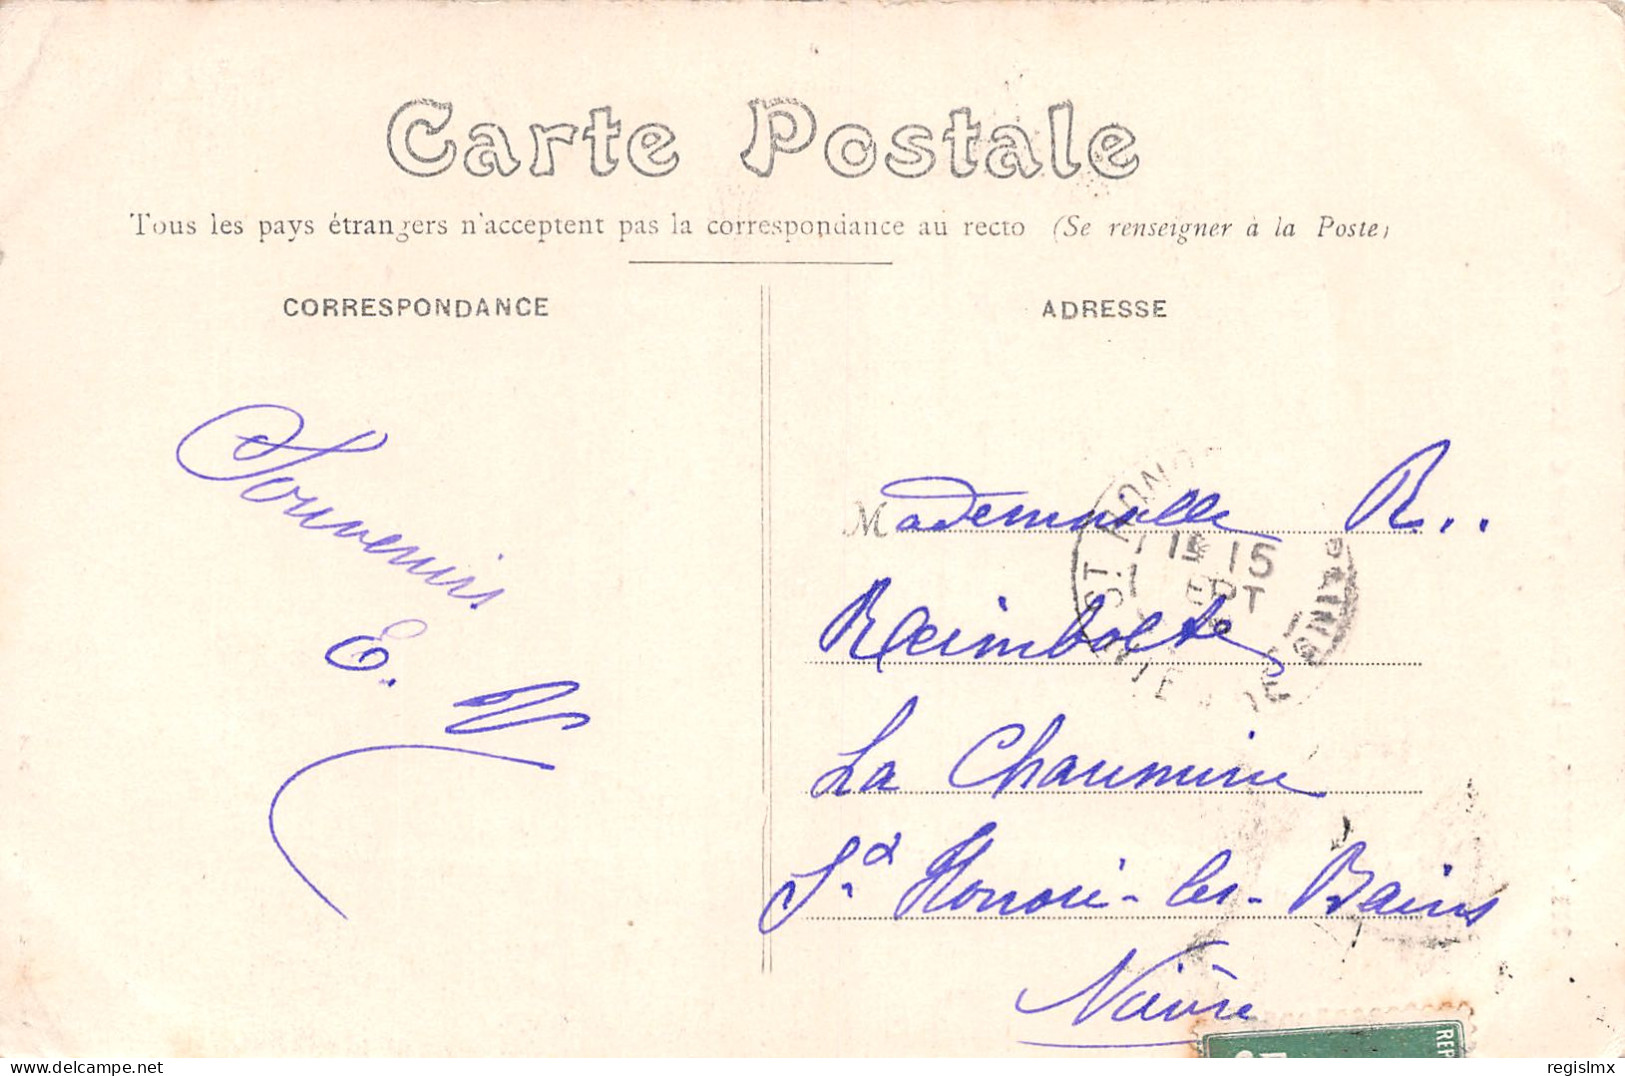 Carte Postale
Tous les pays étrangers n'acceptent pas la correspondance au recto (Se renseigner à la Poste)
CORRESPONDANCE
ADRESSE
Souvenirs
E. V
Mademoiselle R..
Raimbolte
La Chaumine
St Honoré-les-Bains
Nièvre
ST HONO
BAINS
15
EPT
NIEVRE
REP
regislmx